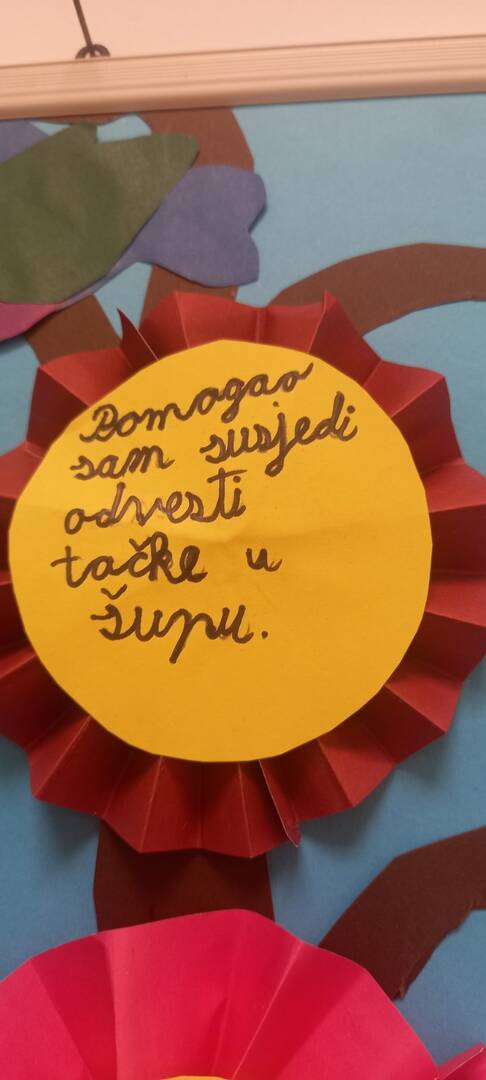 Pomogao
sam susjedi
odvesti
tačke u
šupu.